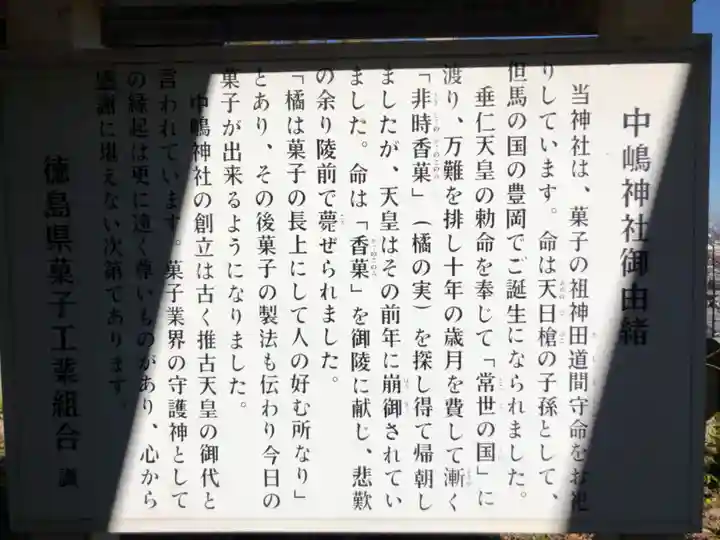 中嶋神社御由緒
当神社は、菓子の祖神田道間守命をお祀
りしています。命は天日槍の子孫として、
但馬の国の豊岡でご誕生になられました。
垂仁天皇の勅命を奉じて「常世の国」に
渡り、万難を排し十年の歳月を費して漸く
「非時香菓」（橘の実）を探し得て帰朝し
ましたが、天皇はその前年に崩御されてい
ました。命は「香菓」を御陵に献じ、悲歎
の余り陵前で薨ぜられました。
「橘は菓子の長上にして人の好む所なり」
とあり、その後菓子の製法も伝わり今日の
菓子が出来るようになりました。
中嶋神社の創立は古く推古天皇の御代と
言われています。菓子業界の守護神として
の縁起は更に遠く尊いものがあり、心から
感謝に堪えない次第であります。
徳島県菓子工業組合